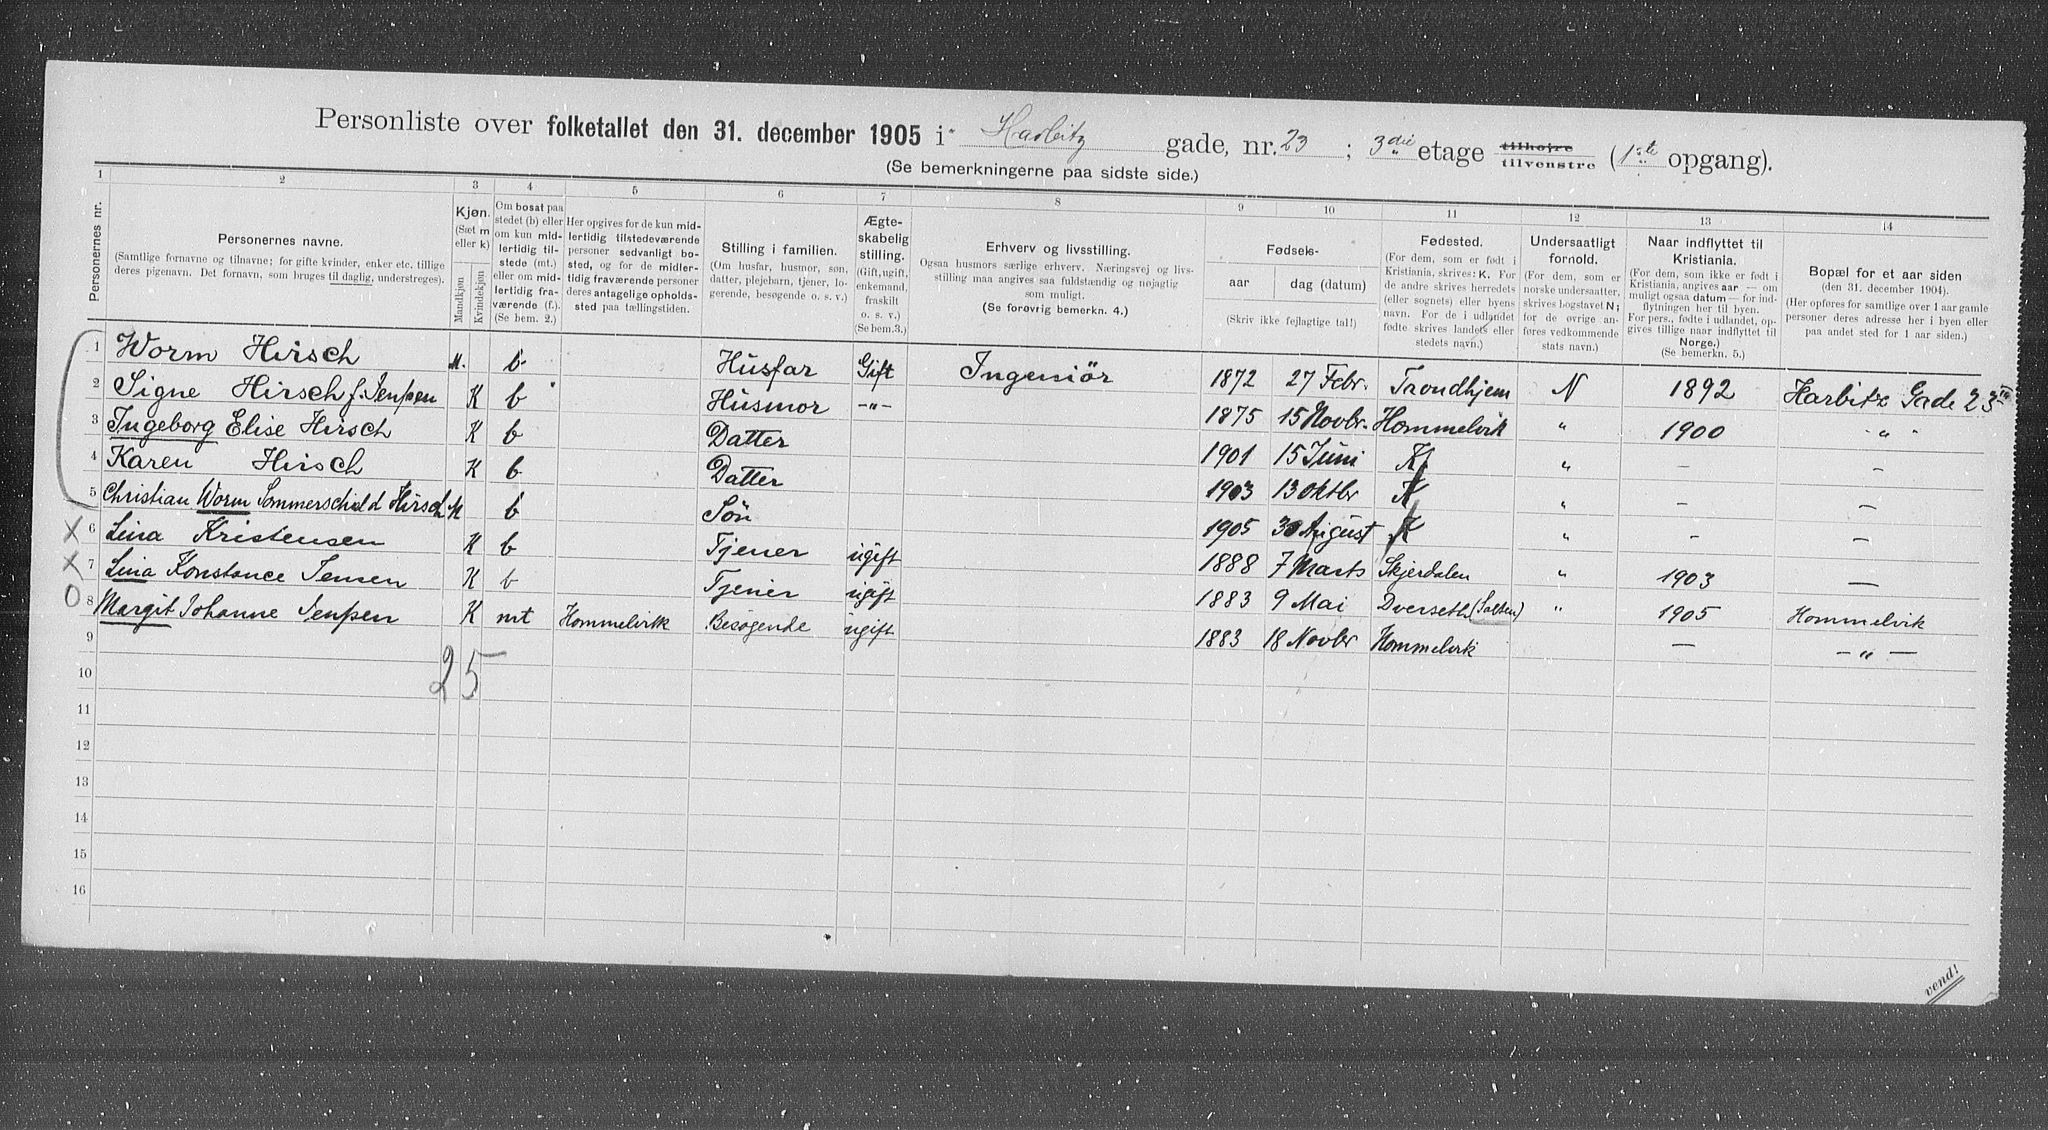 Personliste over folketallet den 31. december 1905 i Harbitz gade, nr. 23 ; 3die etage tilhøjre tilvenstre (1ste opgang).
(Se bemerkningerne paa sidste side.)
1 2 3 4 5 6 7 8 9 10 11 12 13 14
Personernes nr.
Personernes navne.
(Samtlige fornavne og tilnavne; for gifte kvinder, enker etc. tillige
deres pigenavn. Det fornavn, som bruges til daglig, understreges).
Kjøn.
(Sæt m
eller k)
Mandkjøn
Kvindekjøn
Om bosat paa
stedet (b) eller
om kun mid-
lertidig til-
stede (mt.)
eller om mid-
lertidig fra-
værende (f.).
(Se bem. 2.)
Her opgives for de kun mid-
lertidig tilstedeværende
personer sedvanlig bo-
sted, og for de midler-
tidig fraværende personer
deres antagelige opholds-
sted paa tællingstiden.
Stilling i familien.
(Om husfar, husmor, søn,
datter, plejebarn, tjener, lo-
gerende, besøgende o. s. v.)
Ægte-
skabelig
stilling.
(Gift, ugift,
enkemand,
fraskilt
o. s. v.)
(Se bem.3.)
Erhverv og livsstilling.
Ogsaa husmors særlige erhverv. Næringsvej og livs-
stilling maa angives saa fuldstændig og nøjagtig
som muligt.
(Se forøvrig bemerkn. 4.)
Fødsels-
aar
dag (datum)
(Skriv ikke fejlagtige tal!)
Fødested.
(For dem, som er født i
Kristiania, skrives: K. For
de andre skrives herredets
(eller sognets) eller byens
navn. For de i udlandet
fødte skrives landets eller
stedets navn.)
Undersaatligt
fornold.
(For dem, som er
norske undersaatter,
skrives bogstavet N;
for de øvrige an-
føres vedkommende
stats navn.)
Naar indflyttet til
Kristiania.
(For dem, som ikke er født i
Kristiania, angives aar — om
muligt ogsaa datum — for ind-
flytningen her til byen.
For pers., fødte i udlandet, op-
gives tillige naar indflyttet til
Norge.)
(Se bemerkn. 5.)
Bopæl for et aar siden
(den 31. december 1904.)
(Her opføres for samtlige over 1 aar gamle
personer deres adresse her i byen eller
paa andet sted for 1 aar siden.)
1 Worm Hirsch M. b Husfar Gift Ingeniör 1872 27 Febr. Trondhjem N 1892 Harbitz Gade 23 III
2 Signe Hirsch f. Jenssen K b Husmor —"— 1875 15 Novbr. Hommelvik " 1900 " "
3 Ingeborg Elise Hirsch K b Datter 1901 15 Juni K " — —
4 Karen Hirsch K b Datter 1903 13 Oktbr K " — —
5 Christian Worm Sommerschield Hirsch M b Sön 1905 30 August K " — —
X 6 Lina Kristensen K b Tjener ugift 1888 7 Marts Skjerdalen " 1903 —
X 7 Lina Konstance Jensen K b Tjener ugift 1883 9 Mai Dverseth (Salten) " 1905 Hommelvik
O 8 Margit Johanne Jenssen K mt Hommelvik Besøgende ugift 1883 18 Novbr Hommelvik — —"—
9
25
10
11
12
13
14
15
16
vend!